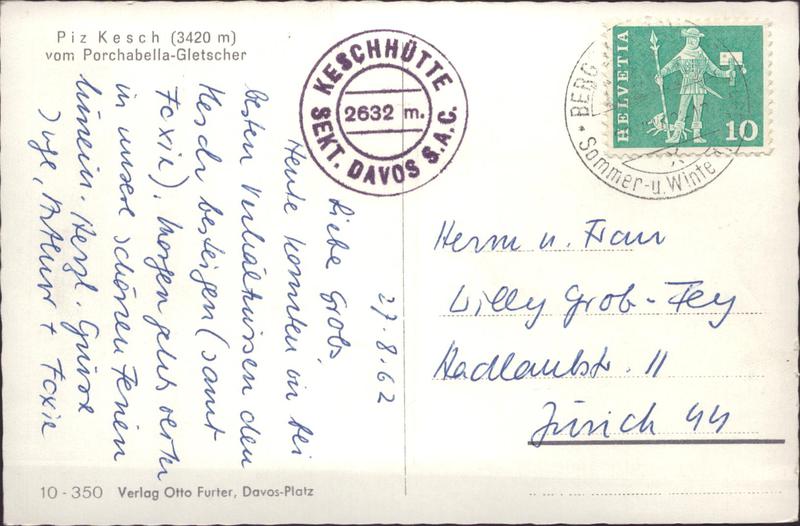 Piz Kesch (3420 m)
vom Porchabella-Gletscher
KESCHHÜTTE
2632 m.
SEKT. DAVOS S.A.C.
HELVETIA
10
BERG
Sommer-u. Winte
27.8.62
Liebe Grobs,
Heute konnten wir bei
besten Verhältnissen den
Kesch besteigen (samt
Foxie). Morgen geht's weiter
in unsere schönen Ferien
hinein. Herzl. Grüsse
Inge, Arthur + Foxie
Herrn u. Frau
Willy Grob-Fey
Hadlaubstr. 11
Zürich 44
10 - 350 Verlag Otto Furter, Davos-Platz